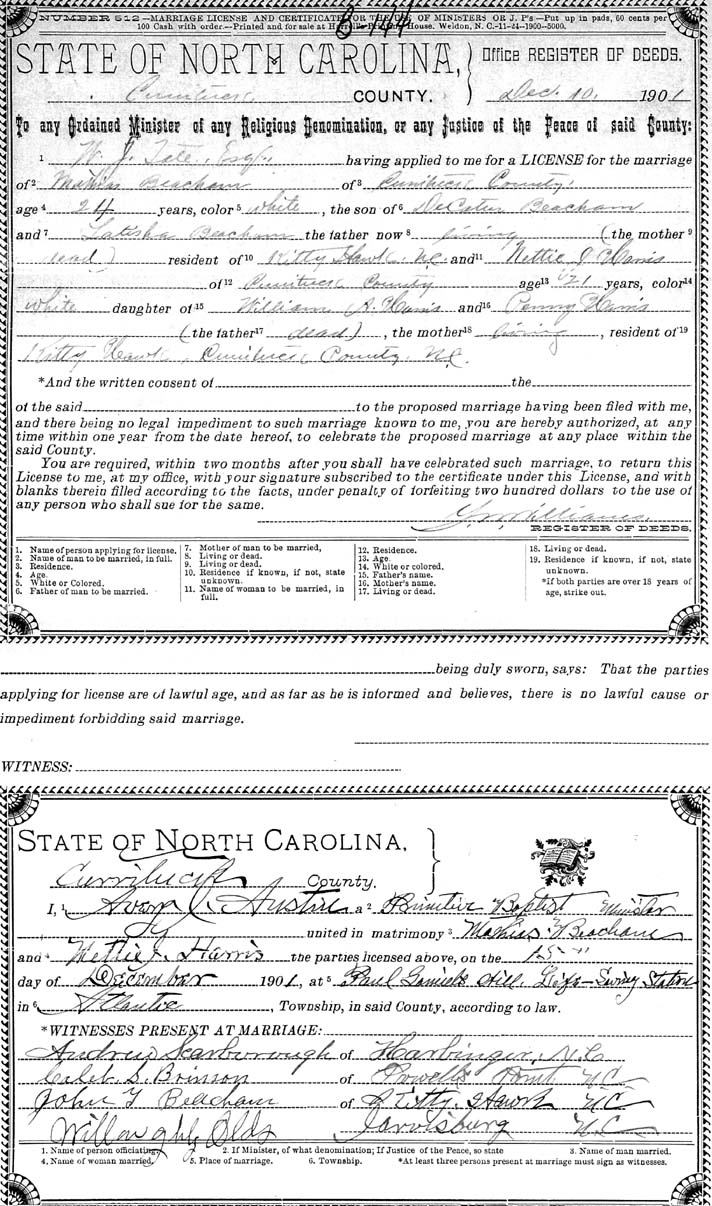 NUMBER 512—MARRIAGE LICENSE AND CERTIFICATE FOR THE USE OF MINISTERS OR J. P's—Put up in pads, 60 cents per
100 Cash with order.—Printed and for sale at House. Weldon, N. C.-11-24-1900-5000.
STATE OF NORTH CAROLINA, Office REGISTER OF DEEDS.
Currituck COUNTY. Dec. 10, 1901
To any Ordained Minister of any Religious Denomination, or any Justice of the Peace of said County:
1 W. J. Tate, Esq., having applied to me for a LICENSE for the marriage
of2 Mathias Beacham of3 Currituck County,
age4 24 years, color5 white, the son of6 DeCatur Beacham
and7 Latisha Beacham the father now8 living (the mother9
dead) resident of10 Kitty Hawk, NC. and11 Nettie J Harris
of12 Currituck County age13 21 years, color14
white daughter of15 William A. Harris and16 Penny Harris
(the father17 dead), the mother18 living, resident of19
Kitty Hawk, Currituck County, NC.
*And the written consent of the
of the said to the proposed marriage having been filed with me,
and there being no legal impediment to such marriage known to me, you are hereby authorized, at any
time within one year from the date hereof, to celebrate the proposed marriage at any place within the
said County.
You are required, within two months after you shall have celebrated such marriage, to return this
License to me, at my office, with your signature subscribed to the certificate under this License, and with
blanks therein filled according to the facts, under penalty of forfeiting two hundred dollars to the use of
any person who shall sue for the same.
Williams.
REGISTER OF DEEDS.
1. Name of person applying for license.
2. Name of man to be married, in full.
3. Residence.
4. Age.
5. White or Colored.
6. Father of man to be married.
7. Mother of man to be married,
8. Living or dead.
9. Living or dead.
10. Residence if known, if not, state
unknown.
11. Name of woman to be married, in
full.
12. Residence.
13. Age.
14. White or colored.
15. Father's name.
16. Mother's name.
17. Living or dead.
18. Living or dead.
19. Residence if known, if not, state
unknown.
*If both parties are over 18 years of
age, strike out.
being duly sworn, says: That the parties
applying for license are of lawful age, and as far as he is informed and believes, there is no lawful cause or
impediment forbidding said marriage.
WITNESS:
STATE OF NORTH CAROLINA,
Currituck County.
I, 1 Avery C. Austin a2 Primitive Baptist Minister
united in matrimony3 Mathias Beacham
and4 Nettie J. Harris the parties licensed above, on the 15
day of December 1901, at5 Paul Gamiels Hill, Life-Saving Station
in6 Atlantic, Township, in said County, according to law.
*WITNESSES PRESENT AT MARRIAGE:
Andrew Scarborough of Harbinger, N.C
Caleb S. Brinson of Powells Point NC
John T Beacham of Kitty Hawk NC
Willoughby Olds Jarvisburg N.C.
1. Name of person officiating. 2. If Minister, of what denomination; If Justice of the Peace, so state 3. Name of man married.
4. Name of woman married. 5. Place of marriage. 6. Township. *At least three persons present at marriage must sign as witnesses.